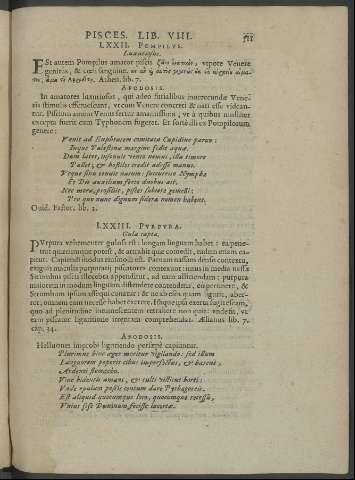 PISCES. LIB. VIII. 511
LXXII. POMPILVS.
Luxuriosus.
Est autem Pompilus amator piscis vtpote Venere
genitus, & cœli sanguine.
Athen. lib. 7.
APODOSIS.
In amatores luxuriosos, qui adeo
stimulis effervescunt, vt cum Venere concreti & nati esse videan-
tur. Piscium autem Venus fertur amantissima, vt à quibus
excepta fuerit cum Typhonem fugeret. Et forte illi ex Pompilorum
genere:
Venit ad Euphratem comitata Cupidine paruo:
Inque Palestinæ margine sedit aquæ.
Dum latet, insonuit vento nemus, illa timore
Pallet, & hostiles credit adesse manus.
Vtque sinu tenuit natum: succurrite Nymphæ
Et Dis auxilium ferte duobus ait.
Nec mora, prosiluit, pisces subiere gemelli:
Pro quo nunc dignum sidera nomen habent.
Ouid. Fastor. lib. 2.
LXXIII. PVRPVRA.
Gula capta.
Purpura vehementer gulosa est: longam linguam habet:
trat quæcunque potest, & attrahit quæ comedit, eadem etiam ca-
pitur. Capiendi modus eiusmodi est. Paruam nassam dense contextam,
exigui purpurarij piscatores contexunt: intus in media nassa
Strombus piscis illecebra appenditur, ad eam
maiorem in modum linguam distendere contendunt,
Strombum ipsum assequi conatur: & ne ab eius quam aber-
ret, omnem eam necesse habet exerere. Itaque ipsa exerta
quo ad plenitudine intumescentem retrahere non quit:
eam piscator liguritione impeditam comprehendat. Ælianus lib. 7.
cap. 34.
APODOSIS.
Helluones improbi liguriendo persæpè capiuntur.
Plurimus hinc æger moritur vigilando: sed illum
Languorem peperit cibus imperfectus, & hærens,
Ardenti stomacho.
Viue bidentis amans, & culti villicus horti:
Vnde epulum possis centum dare Pythagoreis.
Est aliquid quocumque loco, quocumque recessu,
Vnius sese Dominum fecisse lacertæ.